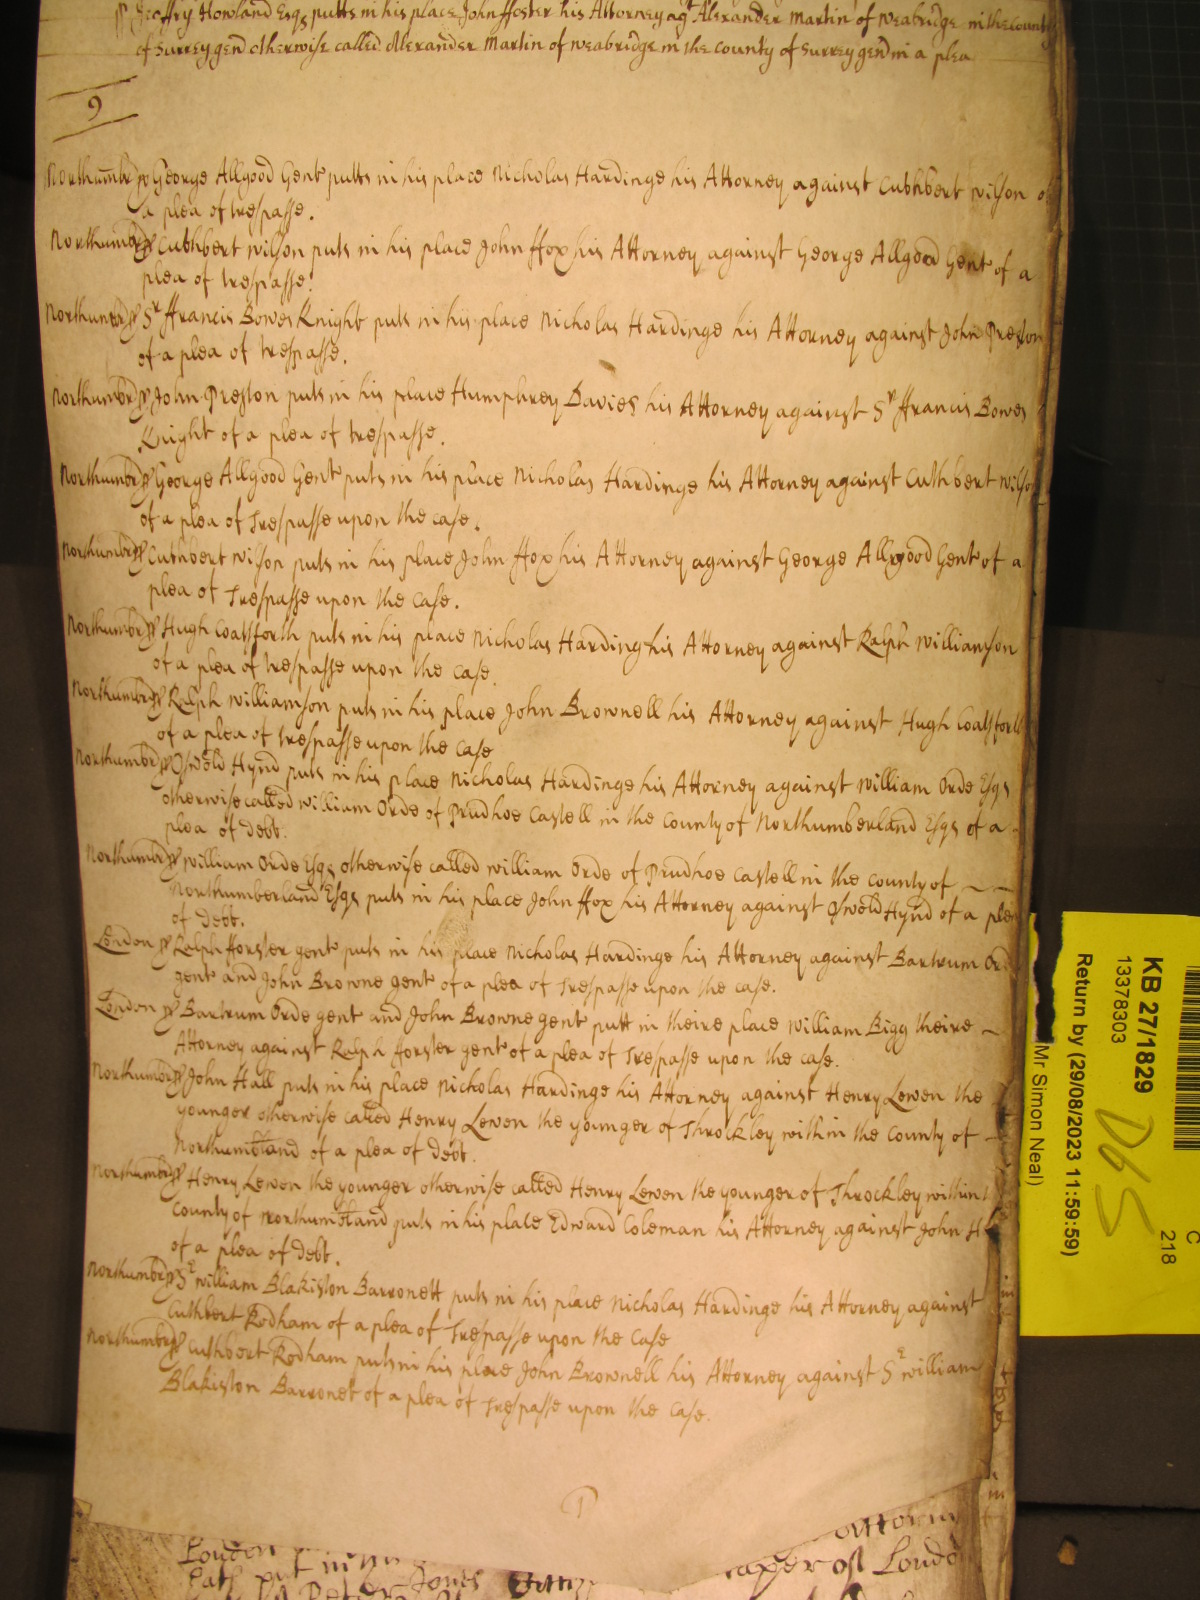 Jeoffry Howland Esqs putts in his place John ffoster his Attorney agt Alexander Martin of Weabridge in the County
of Surrey gend otherwise called Alexander Martin of weabridge in the County of Surrey gend in a plea
9
Northumbr ss George Allgood Gent putts in his place Nicholas Hardinge his Attorney against Cuthbert Wilson of
a plea of trespasse.
Northumbr ss Cuthbert Wilson puts in his place John ffox his Attorney against George Allgood Gent of a
plea of trespasse.
Northumbr ss Sr ffrancis Bowes Knight puts in his place Nicholas Hardinge his Attorney against John Preston
of a plea of trespasse.
Northumbr ss John Preston puts in his place Humphrey Davies his Attorney against Sr ffrancis Bowes
Knight of a plea of trespasse.
Northumbr ss George Allgood Gent puts in his place Nicholas Hardinge his Attorney against Cuthbert Wilson
of a plea of Trespasse upon the case.
Northumbr ss Cuthbert Wilson puts in his place John ffox his Attorney against George Allgood Gent of a
plea of Trespasse upon the Case.
Northumbr ss Hugh Coatsforth puts in his place Nicholas Harding his Attorney against Ralph Williamson
of a plea of trespasse upon the Case.
Northumbr ss Ralph Williamson puts in his place John Brownell his Attorney against Hugh Coatsforth
of a plea of trespasse upon the Case
Northumbr ss Oswold Hynd puts in his place Nicholas Hardinge his Attorney against William Orde Esqs
otherwise called William Orde of Prudhoe Castell in the County of Northumberland Esqs of a
plea of debt.
Northumbr ss William Orde Esqs otherwise called William Orde of Prudhoe Castell in the County of
Northumberland Esqs puts in his place John ffox his Attorney against Oswold Hynd of a plea
of debt.
London ss Ralph fforster gent puts in his place Nicholas Hardinge his Attorney against Bartrum Ord
gent and John Browne gent of a plea of Trespasse upon the case.
London ss Bartrum Orde gent and John Browne gent putt in theire place William Bigg theire
Attorney against Ralph fforster gent of a plea of Trespasse upon the case.
Northumbr ss John Hall puts in his place Nicholas Hardinge his Attorney against Henry Lewen the
younger otherwise called Henry Lewen the younger of Throckley within the County of
Northumbland of a plea of debt.
Northumbr ss Henry Lewen the younger otherwise called Henry Lewen the younger of Throckley within
County of Northumbland puts in his place Edward Coleman his Attorney against John H
of a plea of debt.
Northumbr ss Sr William Blakiston Barronett puts in his place Nicholas Hardinge his Attorney against
Cuthbert Rodham of a plea of Trespasse upon the Case
Northumbr ss Cuthbert Rodham puts in his place John Brownell his Attorney against Sr William
Blakiston Barronet of a plea of Trespasse upon the Case.
London
Jones
of London
KB 27/1829
13378303
Return by (29/08/2023 11:59:59)
Mr Simon Neal)
C
218
DbS